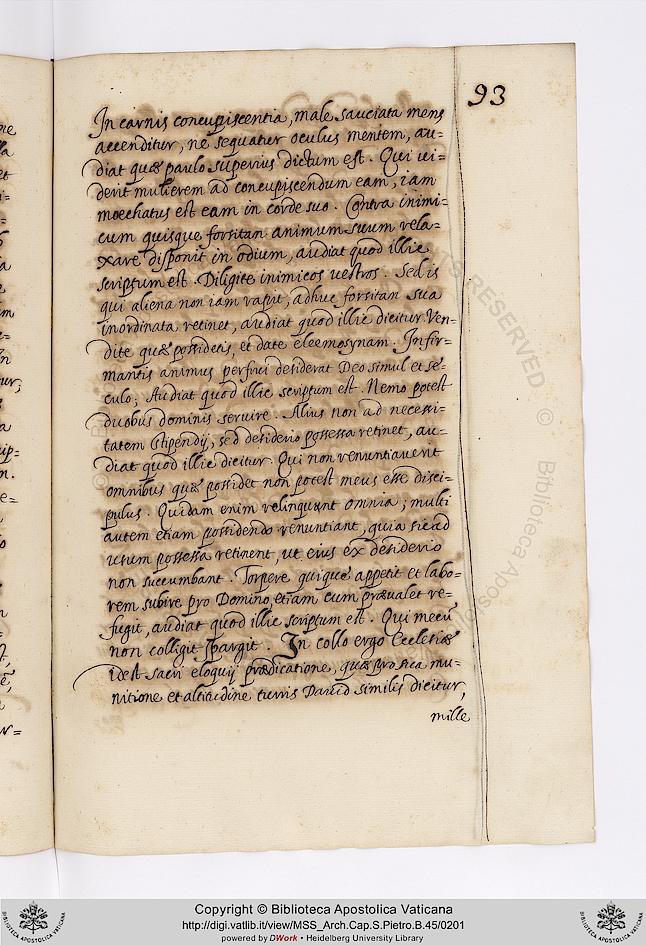 93
In carnis concupiscentia, male sauciata mens
accenditur, ne sequatur oculus mentem, au=
diat quæ paulo superius dictum est. Qui vi=
derit mulierem ad concupiscendum eam, iam
moechatus est eam in corde suo. Contra inimi=
cum quisque forsitan animum suum rela=
xare disponit in odium, audiat quod illic
scriptum est. Diligite inimicos vestros. Sed is
qui aliena non iam rapit, adhuc forsitan sua
inordinata retinet, audiat quod illic dicitur. Ven=
dite quæ possidetis, et date eleemosynam. Infir=
mantis animus perfrui desiderat Deo simul et se=
culo; Audiat quod illic scriptum est. Nemo potest
duobus dominis servire. Alius non ad necessi=
tatem stipendij, sed desiderio possessa retinet, au=
diat quod illic dicitur. Qui non renuntiaverit
omnibus quæ possidet non potest meus esse disci=
pulus. Quidam enim relinquunt omnia; multi
autem etiam possidendo renuntiant, quia sic ad
usum possessa retinent, ut eius ex desiderio
non succumbant. Torpere quique appetit et labo=
rem subire pro Domino etiam cum prævalet re=
fugit, audiat quod illic scriptum est. Qui mecū
non colligit spargit. In collo ergo Ecclesiæ
idest sacri eloquij prædicatione, quæ pro sica mu=
nitione et altitudine turris David similis dicitur,
mille
Copyright © Biblioteca Apostolica Vaticana
http://digi.vatlib.it/view/MSS_Arch.Cap.S.Pietro.B.45/0201
powered by DWork • Heidelberg University Library